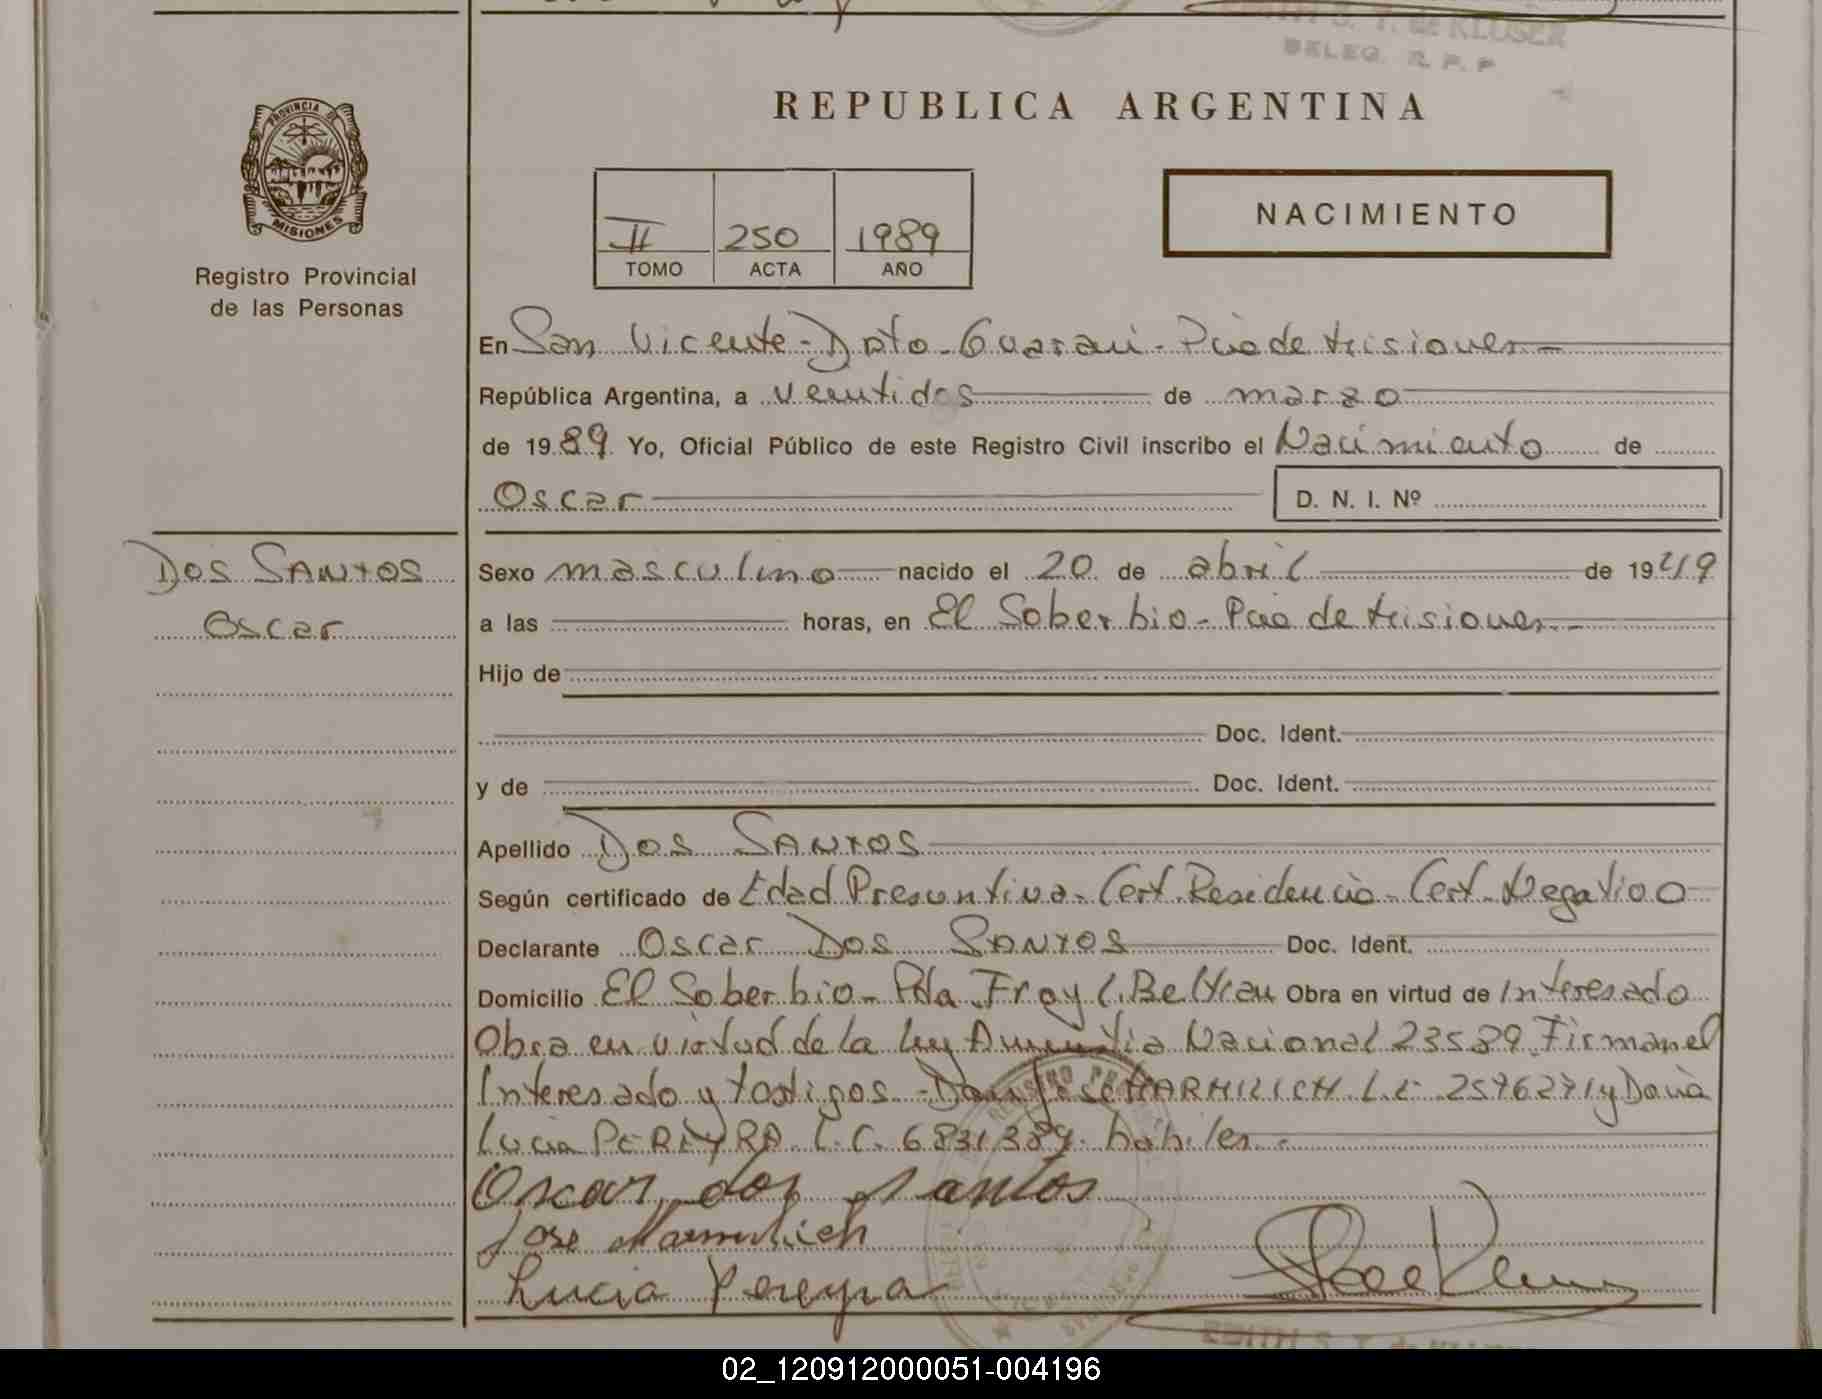 EDITH S. T. de KLUSER
DELEG. R. P. P
REPUBLICA ARGENTINA
PROVINCIA DE
MISIONES
Registro Provincial
de las Personas
II 250 1989
TOMO ACTA AÑO
NACIMIENTO
En San Vicente - Dpto - Guarani - Pcia de Misiones
República Argentina, a veintidos de marzo
de 1989 Yo, Oficial Público de este Registro Civil inscribo el Nacimiento de
Oscar D. N. I. Nº
DOS SANTOS
Oscar
Sexo masculino nacido el 20 de abril de 1949
a las horas, en El Soberbio - Pcia de Misiones -
Hijo de
Doc. Ident.
y de Doc. Ident.
Apellido DOS SANTOS
Según certificado de Edad Presuntiva - Cert. Residencia - Cert. Negativo
Declarante Oscar DOS SANTOS Doc. Ident.
Domicilio El Soberbio - Pda Fray L. Beltran Obra en virtud de Interesado
Obra en virtud de la ley Amnistia Nacional 23529. Firman el
Interesado y testigos - Don Jose MARMILICH L.E. 2576271 y Doña
Lucia PEREYRA L.C. 6831389. habiles. -
Oscar dos santos
Jose Marmilich
Lucia Pereyra
02_120912000051-004196